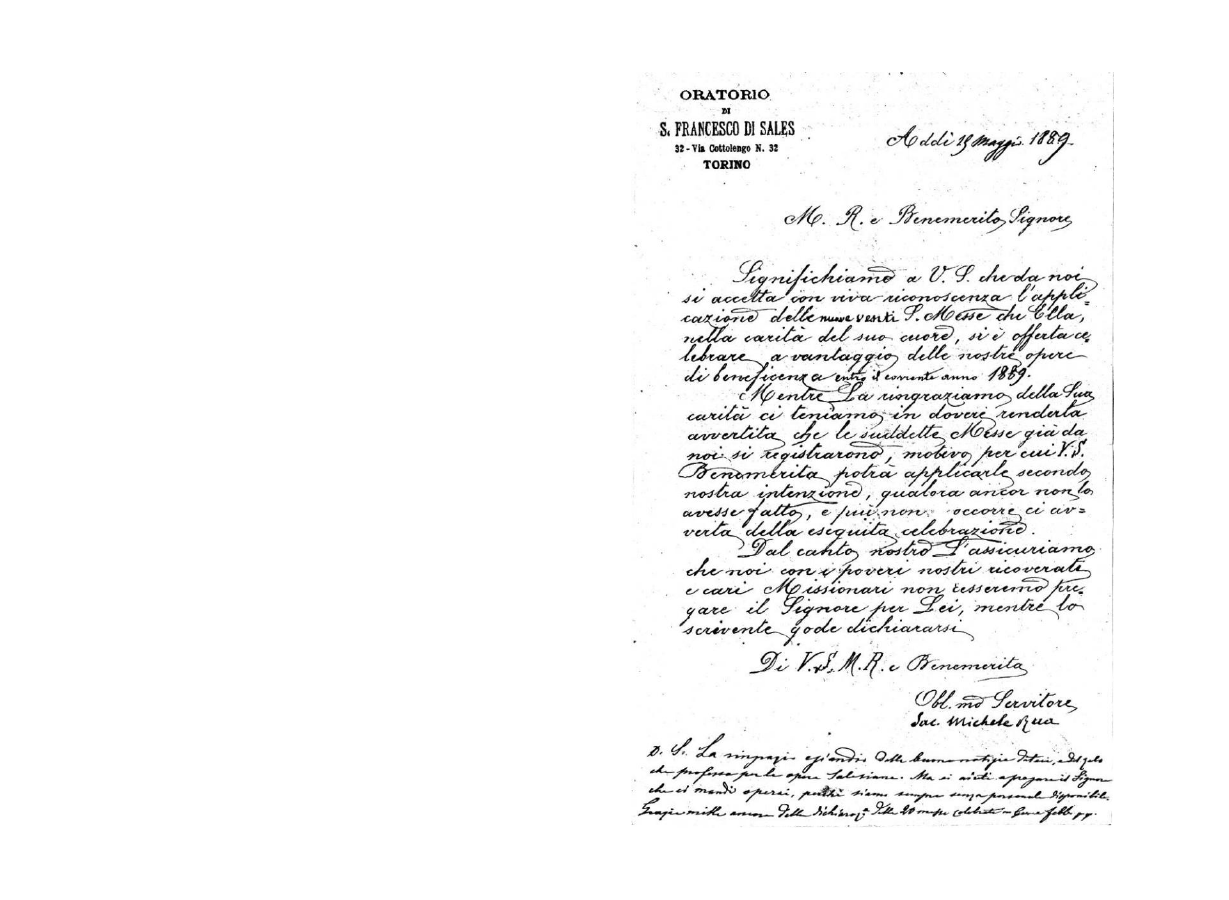 ORATORIO
DI
S. FRANCESCO DI SALES
32 - Via Cottolengo N. 32
TORINO
Addì Maggio 1889.
M. R. e Benemerito Signore
Significhiamo a V. S. che da noi
si accetta con viva riconoscenza l'appli=
cazione delle nuove venti S. Messe che Ella,
nella carità del suo cuore, si è offerta ce
lebrare a vantaggio delle nostre opere
di beneficenza entro il corrente anno 1889.
Mentre La ringraziamo della Sua
carità ci teniamo in dovere renderla
avvertita che le suddette Messe già da
noi si registrarono, motivo per cui V. S.
Benemerita potrà applicarle secondo
nostra intenzione, qualora ancor non lo
avesse fatto, e più non occorre ci av=
verta della eseguita celebrazione.
Dal canto nostro L'assicuriamo
che noi con i poveri nostri ricoverati
e cari Missionari non cesseremo pre-
gare il Signore per Lei, mentre lo
scrivente gode dichiararsi
Di V. S. M. R. e Benemerita
Obl.mo Servitore
Sac. Michele Rua
P. S. La delle buone notizie e del zelo
che professa per le opere Salesiane. Ma ci aiuti a pregare il Signore
che ci mandi operai, perchè siamo sempre senza personale disponibile.
Grazie mille ancora della delle 20 messe celebrate in febb. pp.